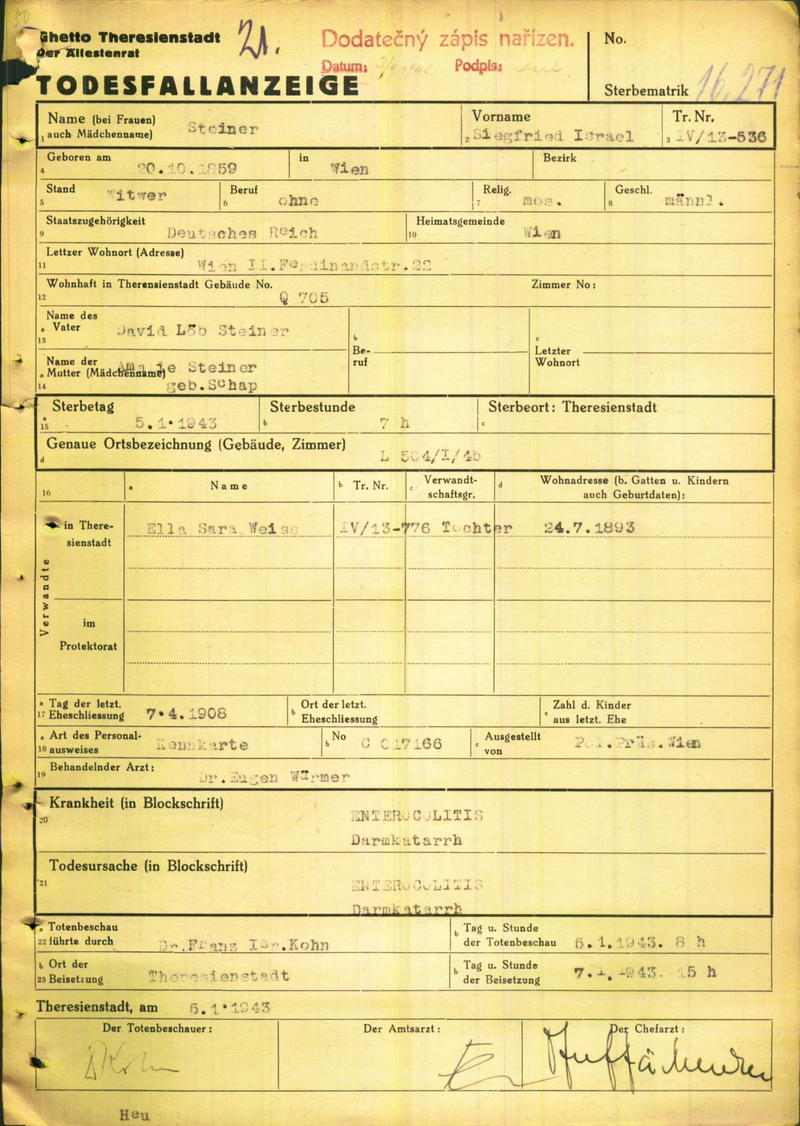 50
Ghetto Theresienstadt
der Ältestenrat
21.
Dodatečný zápis nařízen.
Datum: Podpis:
No.
TODESFALLANZEIGE
Sterbematrik 16,271
Name (bei Frauen)
1 auch Mädchenname) Steiner
Vorname
2 Siegfried Israel
Tr. Nr.
3 IV/13-536
Geboren am
4 20.10.1859
in Wien
Bezirk
Stand
5 Witwer
Beruf
6 ohne
Relig.
7 mos.
Geschl.
8 männl.
Staatszugehörigkeit
9 Deutsches Reich
Heimatsgemeinde
10 Wien
Lettzer Wohnort (Adresse)
11 Wien II.Ferdinandstr.22
Wohnhaft in Therensienstadt Gebäude No.
12 Q 705
Zimmer No:
Name des
a Vater David Löb Steiner
13
b
Be-
ruf
c
Letzter
Wohnort
Name der
a Mutter (Mädchenname) Steiner
14 geb.Schap
Sterbetag
a
15 5.1.1943
Sterbestunde
b 7 h
Sterbeort: Theresienstadt
c
Genaue Ortsbezeichnung (Gebäude, Zimmer)
d L 504/I/4b
16
a Name
b Tr. Nr.
c Verwandt-
schaftsgr.
d Wohnadresse (b. Gatten u. Kindern
auch Geburtdaten):
Verwandte
in There-
sienstadt
Ella Sara Weiss IV/13-776 Tochter 24.7.1893
im
Protektorat
a Tag der letzt.
17 Eheschliessung 7.4.1908
b Ort der letzt.
Eheschliessung
c Zahl d. Kinder
aus letzt. Ehe
a Art des Personal-
18 ausweises Kennkarte
b No C 017166
c Ausgestellt
von Pol.Präs.Wien
Behandelnder Arzt:
19 Dr.Eugen Wärmer
Krankheit (in Blockschrift)
20 ENTEROCOLITIS
Darmkatarrh
Todesursache (in Blockschrift)
21 ENTEROCOLITIS
Darmkatarrh
a Totenbeschau
22 führte durch Dr.Franz Isr.Kohn
b Tag u. Stunde
der Totenbeschau 5.1.1943. 8 h
b Ort der
23 Beisetzung Theresienstadt
b Tag u. Stunde
der Beisetzung 7.1.1943. 15 h
Theresienstadt, am 5.1.1943
Der Totenbeschauer:
Der Amtsarzt:
Der Chefarzt:
Heu